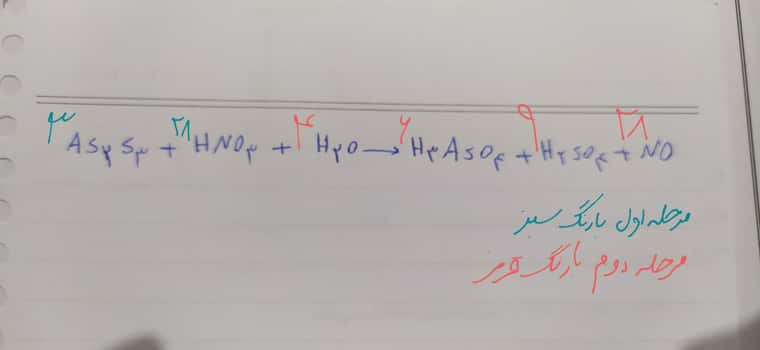 ۳ As۲S۳ + ۲۸ HNO۳ + ۴ H۲O → ۶ H۳AsO۴ + ۹ H۲SO۴ + ۲۸ NO
مرحله اول با رنگ سبز
مرحله دوم با رنگ قرمز